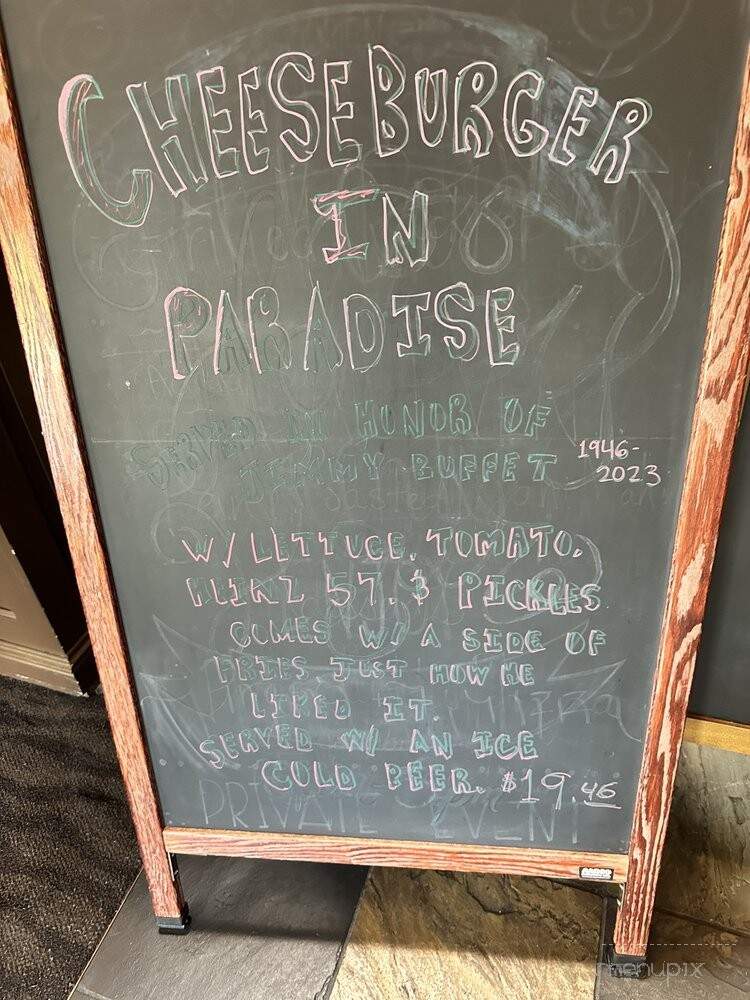 CHEESEBURGER
IN
PARADISE
SERVED IN HONOR OF
JIMMY BUFFET 1946-
2023
W/ LETTUCE, TOMATO,
HEINZ 57, & PICKLES
COMES W/ A SIDE OF
FRIES JUST HOW HE
LIKED IT.
SERVED W/ AN ICE
COLD BEER. $19.46
PRIVATE EVENT
menupix